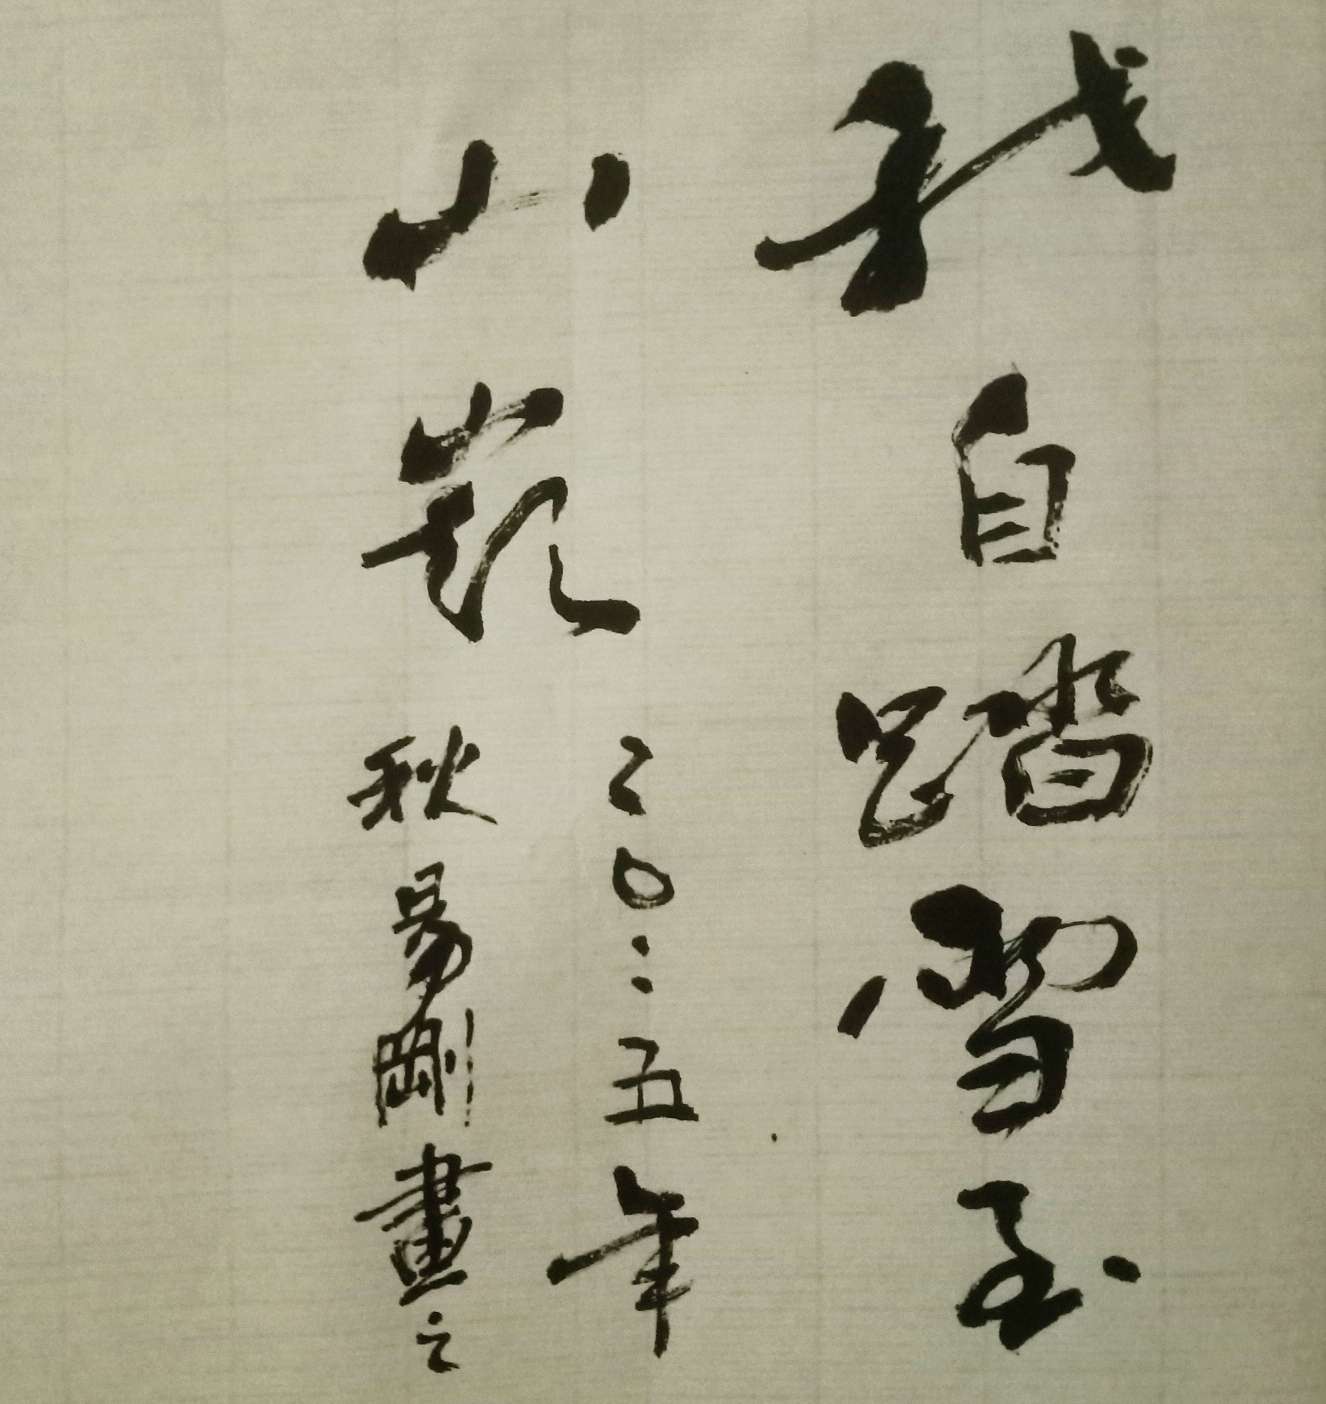 我自踏雪至
山巔
二〇二五年
秋易剛畫之